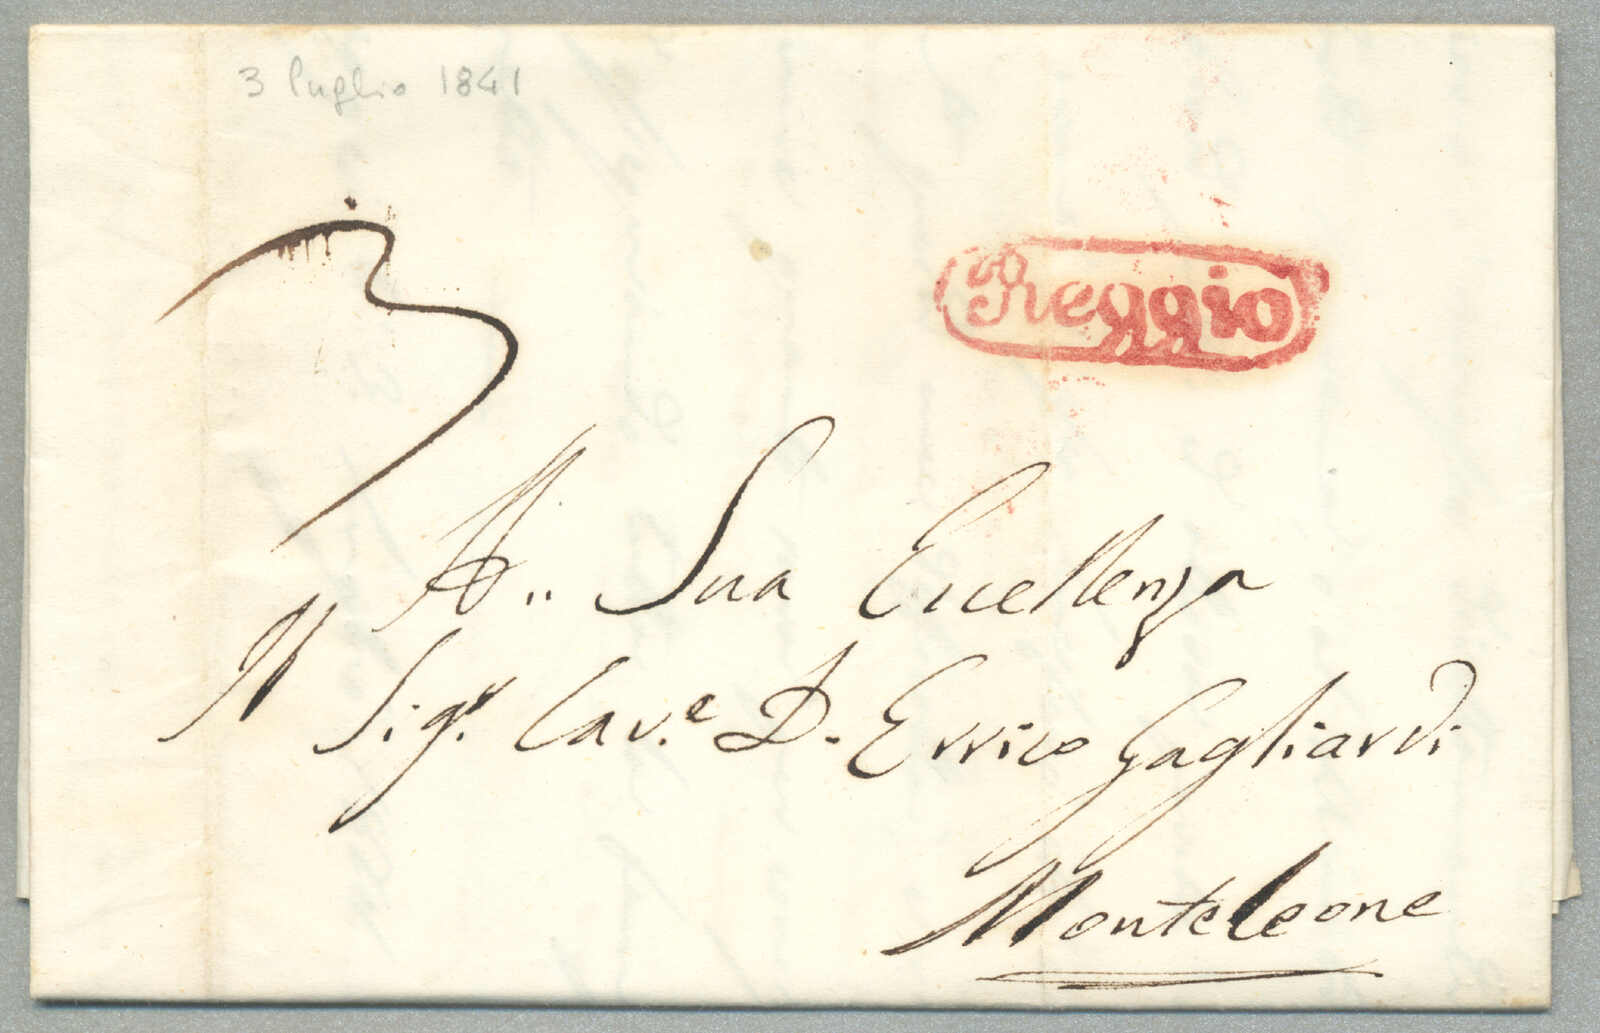 3 luglio 1841
3
Reggio
A.. Sua Eccellenza
Il Sigr. Cav.e D. Errico Gagliardi
Monteleone